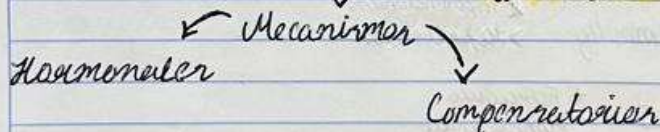 Mecanismos
Hormonales
Compensatorios